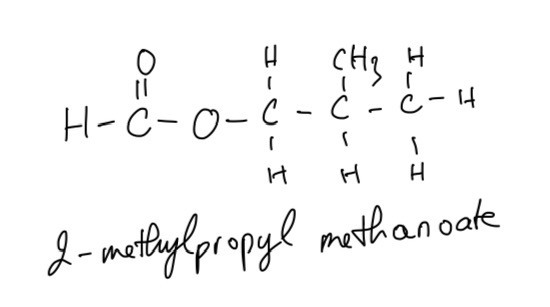 O H CH3 H
H-C-O-C-C-C-H
H H H
2-methylpropyl methanoate